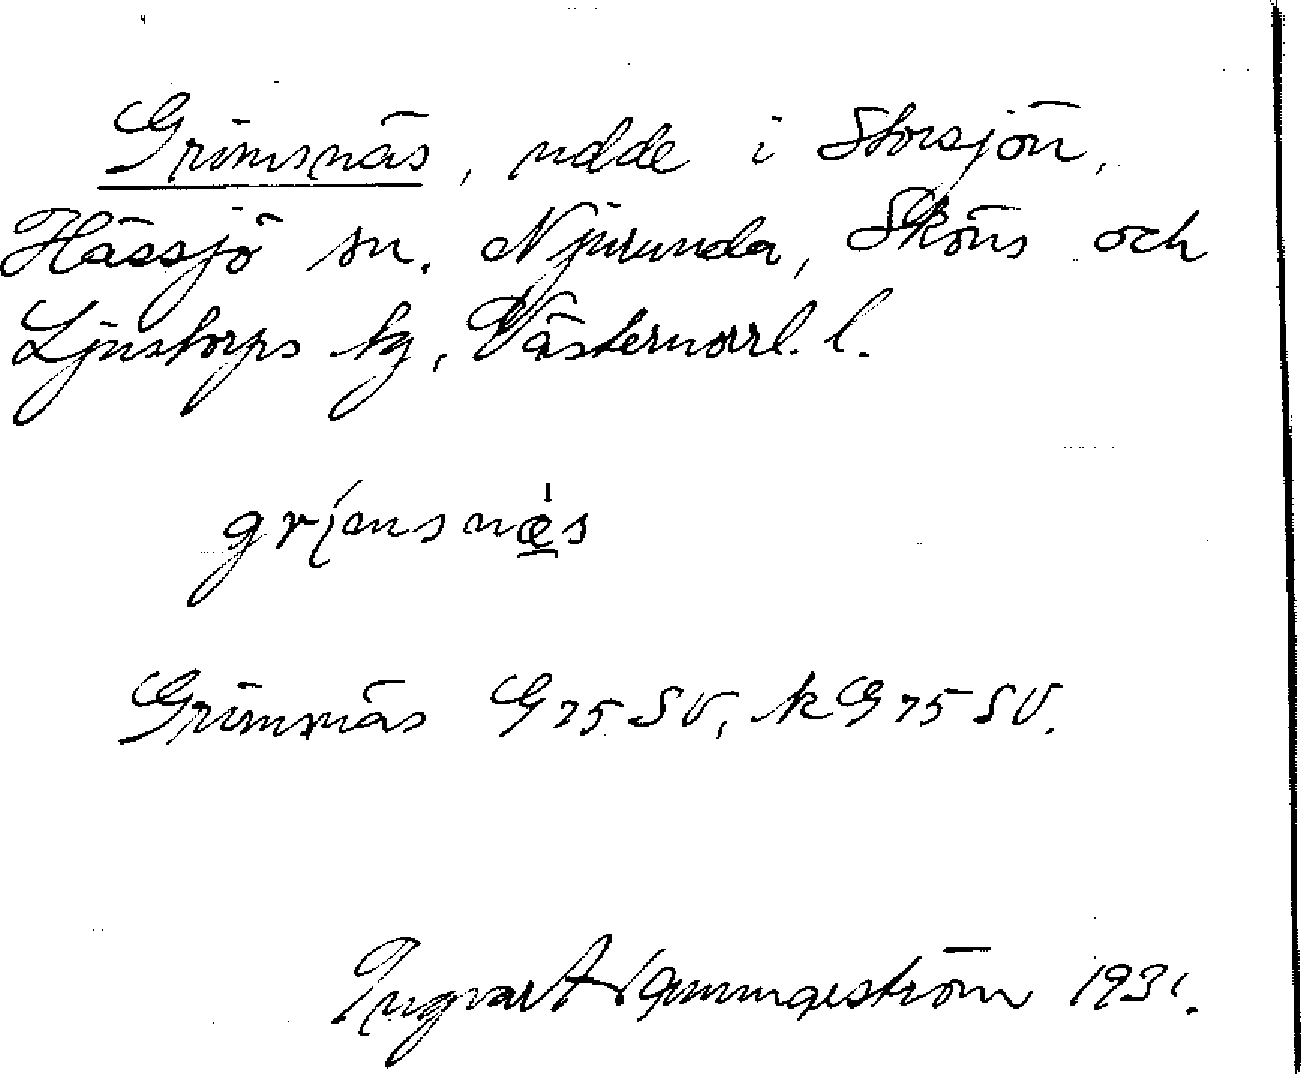 Grimsnäs, udde i Storsjön,
Hässjö sn. Njurunda, Sköns och
Ljustorps tg, Västernorrl. l.
Grimnäs G 75 SV, k G 75 SV.
Ingvar 1931.